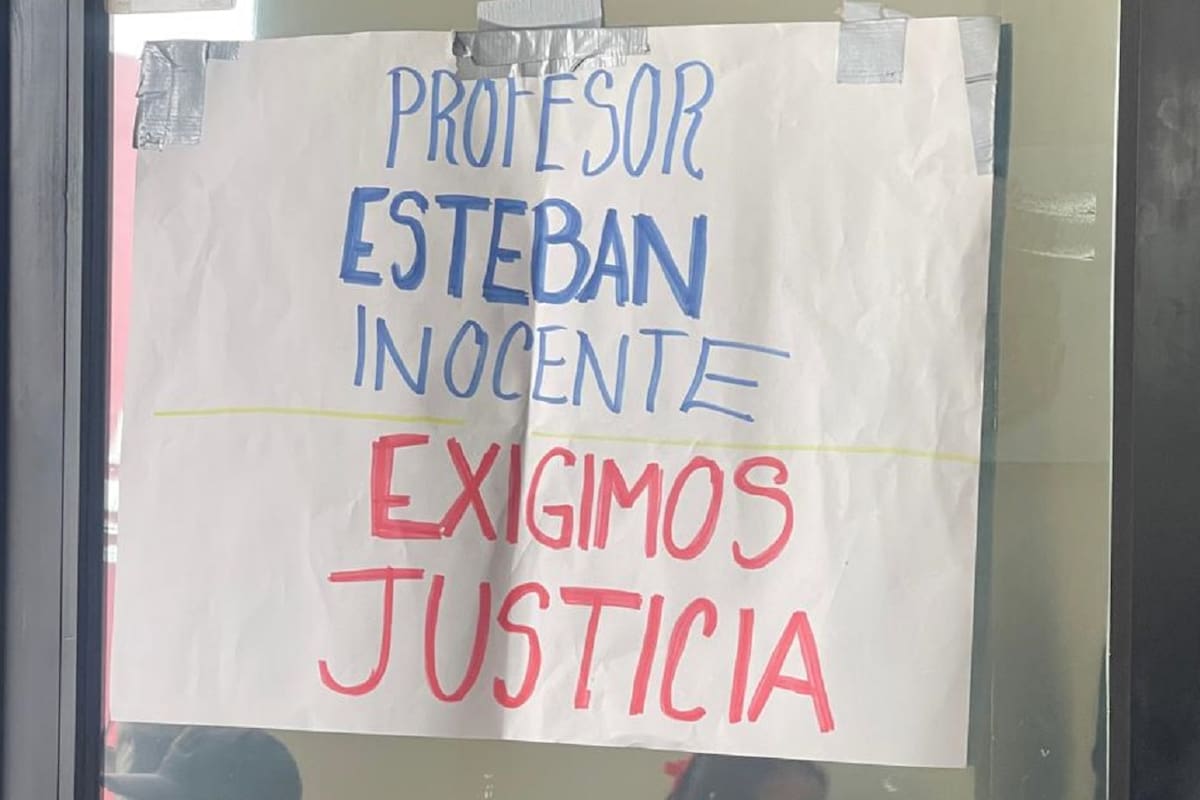 PROFESOR
ESTEBAN
INOCENTE
EXIGIMOS
JUSTICIA